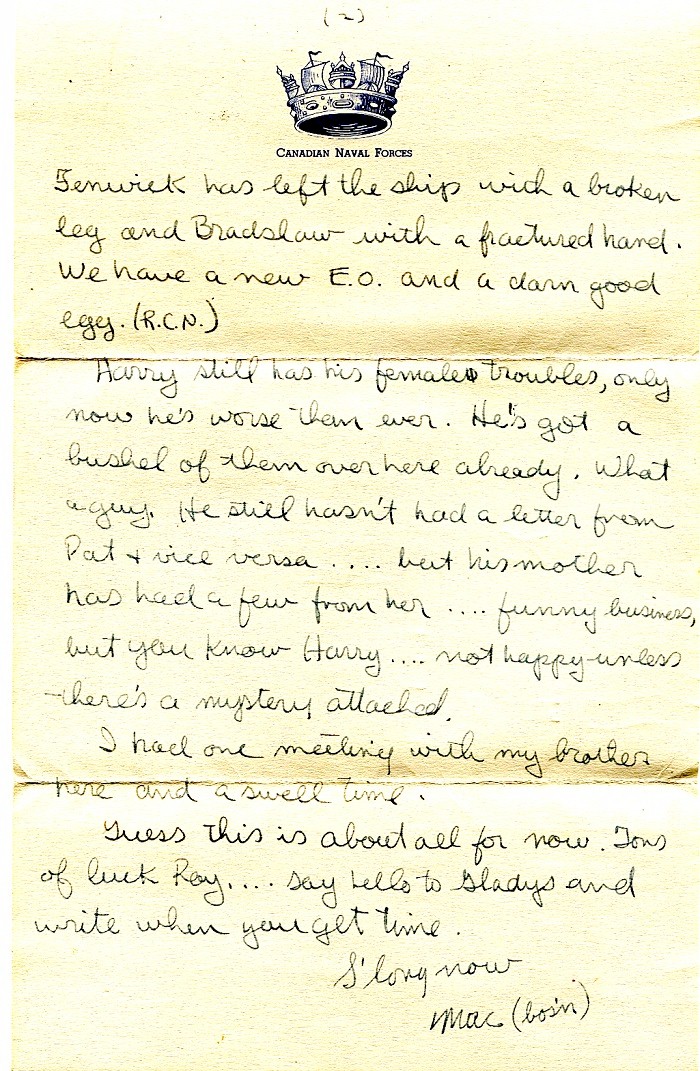 (2)
CANADIAN NAVAL FORCES
Fenwick has left the ship with a broken
leg and Bradslaw with a fractured hand.
We have a new E.O. and a darn good
egg. (R.C.N.)
Harry still has his female troubles, only
now he's worse than ever. He's got a
bushel of them over here already. What
a guy. He still hasn't had a letter from
Pat + vice versa .... but his mother
has had a few from her .... funny business,
but you know Harry.... not happy unless
there's a mystery attached.
I had one meeting with my brother
here and a swell time.
Guess this is about all for now. Tons
of luck Roy.... say hello to Gladys and
write when you get time.
S'long now
Mac (bos'n)